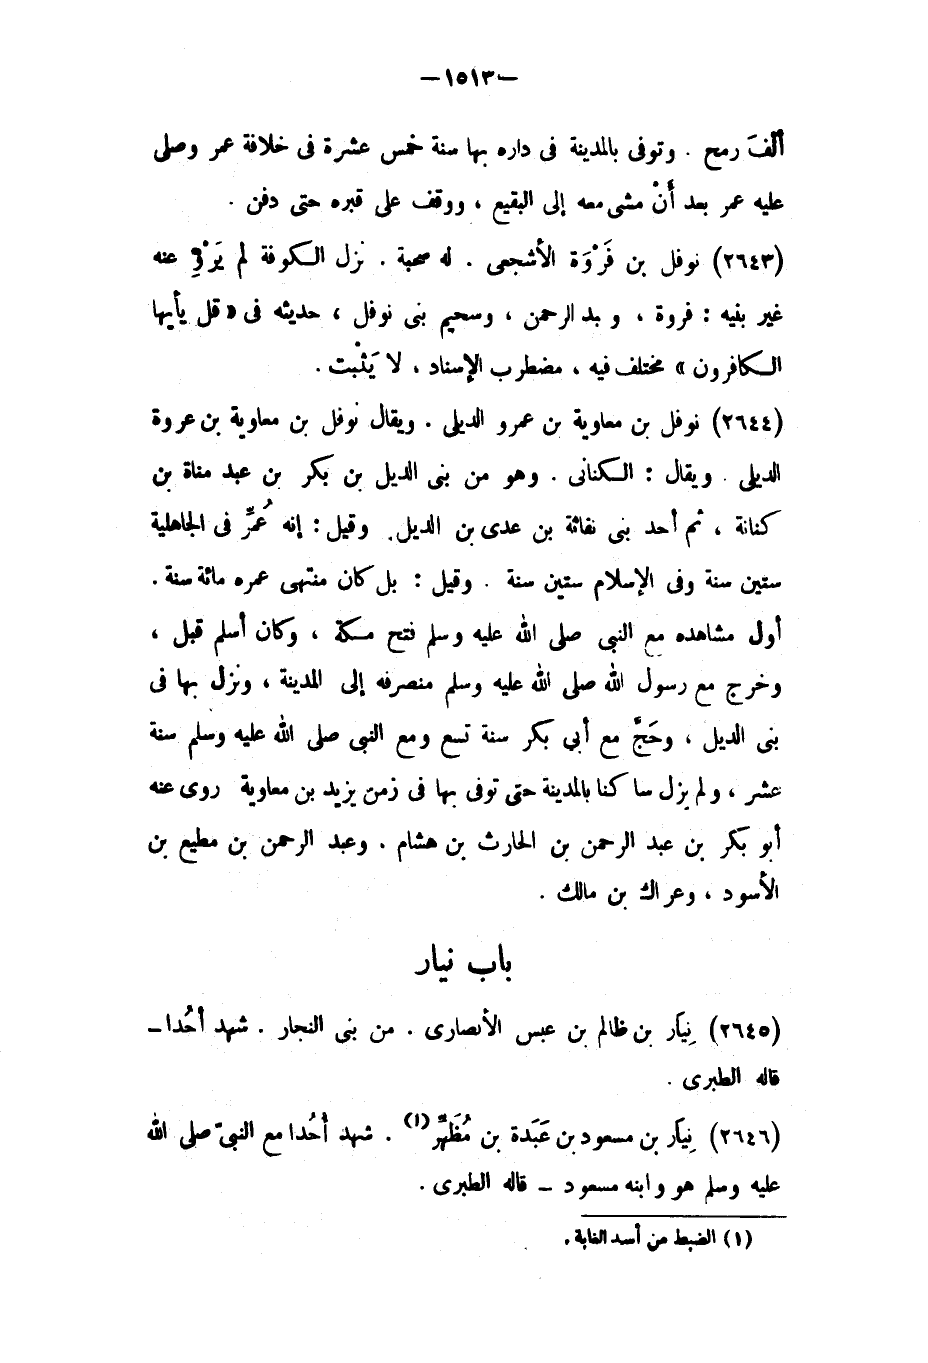 —١٥١٣—
ألفَ رمح . وتوفى بالمدينة فى داره بها سنة خمس عشرة فى خلافة عمر وصلى
عليه عمر بعد أَنْ مشى معه إلى البقيع ، ووقف على قبره حتى دفن .
(٢٦٤٣) نوفل بن فَرْوَة الأشجعى . له صحبة . نزل الكوفة لم يَرْوِ عنه
غير بنيه : فروة ، و بد الرحمن ، وسحيم بنى نوفل ، حديثه فى « قل يأيها
الكافرون » مختلف فيه ، مضطرب الإسناد ، لا يَثْبت .
(٢٦٤٤) نوفل بن معاوية بن عمرو الديلى . ويقال نوفل بن معاوية بن عروة
الديلى . ويقال : الكنانى . وهو من بنى الديل بن بكر بن عبد مناة بن
كنانة ، ثم أحد بنى نفاثة بن عدى بن الديل . وقيل : إنه عُمِّر فى الجاهلية
ستين سنة وفى الإسلام ستين سنة . وقيل : بل كان منتهى عمره مائة سنة .
أول مشاهده مع النبى صلى الله عليه وسلم فتح مكة ، وكان أسلم قبل ،
وخرج مع رسول الله صلى الله عليه وسلم منصرفه إلى المدينة ، ونزل بها فى
بنى الديل ، وحَجَّ مع أبي بكر سنة تسع ومع النبى صلى الله عليه وسلم سنة
عشر ، ولم يزل ساكنا بالمدينة حتى توفى بها فى زمن يزيد بن معاوية روى عنه
أبو بكر بن عبد الرحمن بن الحارث بن هشام . وعبد الرحمن بن مطيع بن
الأسود ، وعراك بن مالك .
باب نيار
(٢٦٤٥) نِيَار بن ظالم بن عبس الأنصارى . من بنى النجار . شهد أُحُدا –
قاله الطبرى .
(٢٦٤٦) نِيَار بن مسعود بن عَبَدة بن مُظَهِّر(١) . شهد أُحُدا مع النبىّ صلى الله
عليه وسلم هو وابنه مسعود – قاله الطبرى .
(١) الضبط من أسد الغابة .